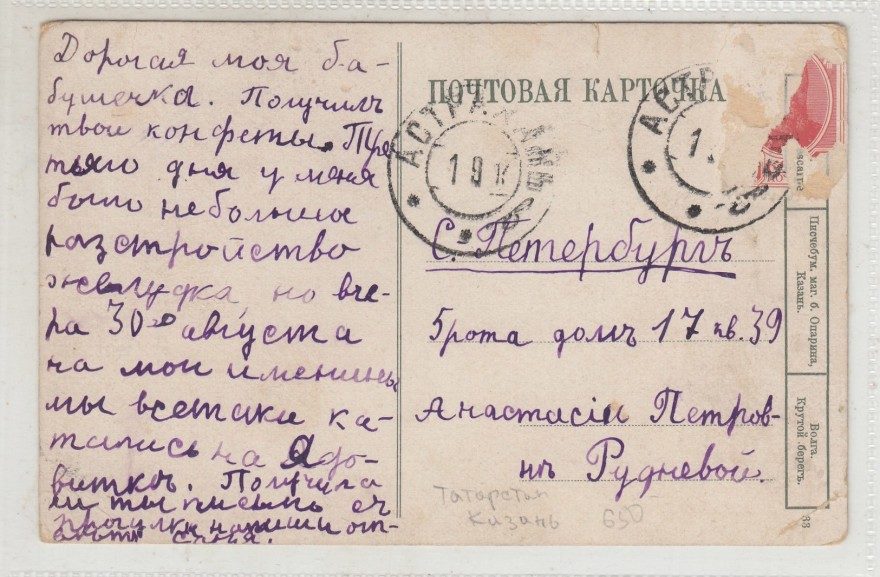 Дорогая моя ба-
бушечка. Получилъ
твои конфеты. Тре
тьяго дня у меня
было небольшое
разстройство
желудка, но вче-
ра 30го августа
на мои именины
мы всетаки ка-
тались на Ядо-
виткѣ. Получила
ли ты письмо съ
прогулки напиши
ПОЧТОВАЯ КАРТОЧКА
АСТРАХАНЬ
19
АСТР
1
С. Петербургъ
5 рота домъ 17 кв. 39
Анастасіи Петров-
нѣ Рудневой.
Татарстан
Казань 650
Писчебум. маг. б. Опарина,
Казань.
Волга.
Крутой берегъ.
33